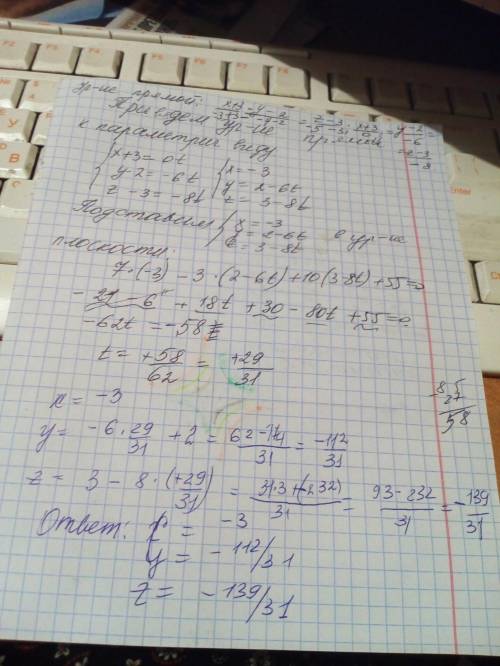 Ур-ие прямой: (x+3)/(-3+3) = (y-2)/(-4-2) = (z-3)/(-5-3); (x+3)/0 = (y-2)/-6 = (z-3)/-8
Приведем ур-ие прямой
к параметрич виду
{ x+3 = 0t { x = -3
{ y-2 = -6t { y = 2-6t
{ z-3 = -8t { z = 3-8t
Подставим { x = -3
{ y = 2-6t в ур-ие
{ z = 3-8t
плоскости:
7·(-3) - 3·(2-6t) + 10(3-8t) + 55 = 0
-21 - 6 + 18t + 30 - 80t + 55 = 0
-62t = -58
t = +58/62 = +29/31
85
27
58
x = -3
y = -6·29/31 + 2 = (62-174)/31 = -112/31
z = 3 - 8·(+29/31) = (31·3+(-232))/31 = (93-232)/31 = -139/31
Ответ: x = -3
y = -112/31
z = -139/31